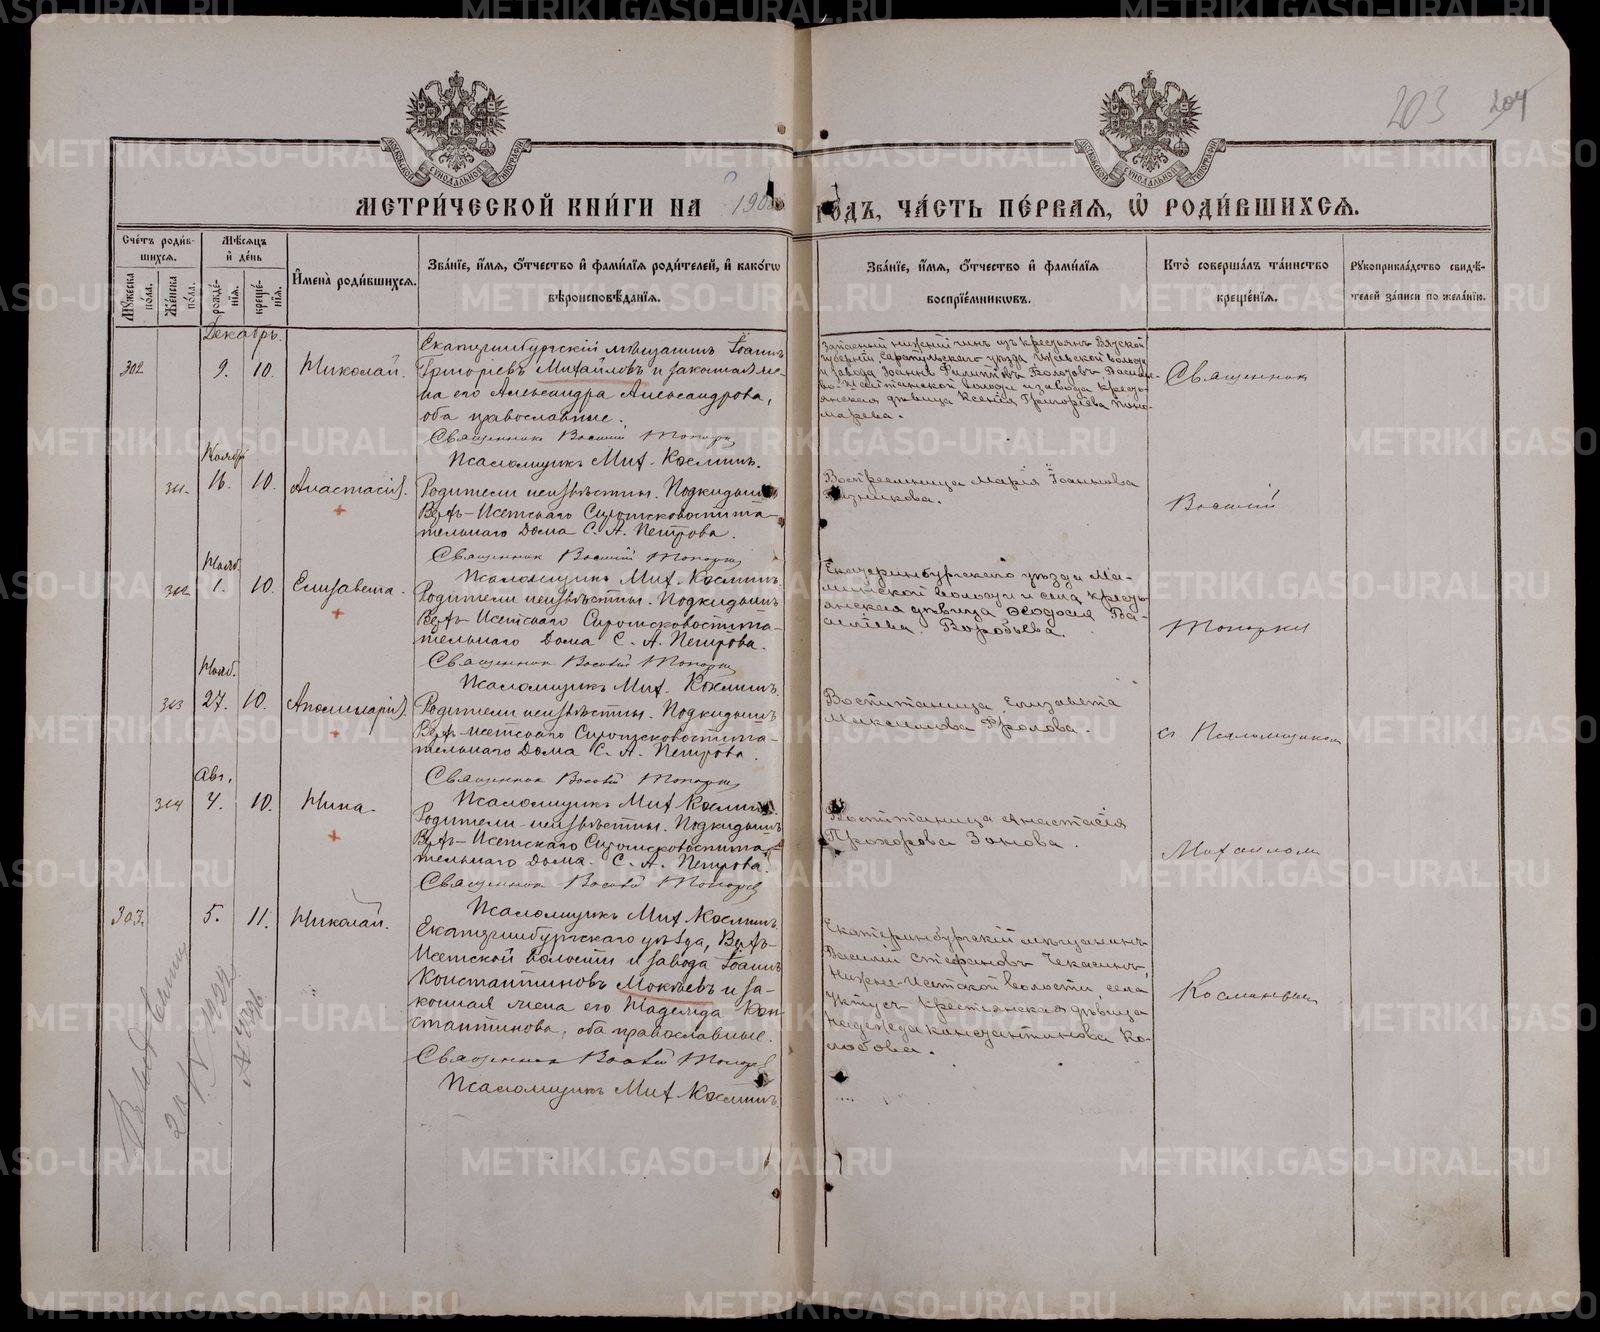 203 204
МОСКОВСКОЙ СѴНОДАЛЬНОЙ ТИПОГРАФІИ
МОСКОВСКОЙ СѴНОДАЛЬНОЙ ТИПОГРАФІИ
МЕТРИ́ЧЕСКОЙ КНИ́ГИ НА 190
ГОДЪ, ЧА́СТЬ ПЕ́РВАЯ, Ѡ РОДИ́ВШИХСЯ.
Сче́тъ роди́вшихся.
Му́жеска по́ла.
Же́нска по́ла.
Мѣ́сяцъ и де́нь
рожде́нія.
креще́нія.
Имена̀ роди́вшихся.
Зва́ніе, и́мя, о́тчество и фами́лія роди́телей, и како́гѡ
вѣроисповѣ́данія.
Зва́ніе, и́мя, о́тчество и фами́лія
воспріе́мниковъ.
Кто̀ соверша́лъ та́инство
креще́нія.
Рукоприкла́дство свидѣ́-
телей за́писи по жела́нію.
Декабрь.
302 9. 10. Николай.
Екатеринбургскій мѣщанинъ Іоаннъ
Григорьевъ Михайловъ и законная же-
на его Александра Александрова,
оба православные.
Священникъ Василій Топорк
Псаломщикъ Мих. Косминъ.
Запасный нижній чинъ изъ крестьянъ Вятской
губерніи, Сарапульскаго уѣзда
и завода Іоаннъ Филипповъ
Шайтанской волости и завода кресть-
янская дѣвица Ксенія Григоріева Поно-
марева.
Священник
Ноябр
311. 16. 10. Анастасія.
Родители неизвѣстны. Подкидышъ
Верхъ-Исетскаго Сиротсковоспита-
тельнаго Дома С. А. Петрова.
Священник Василій Топорк
Псаломщикъ Мих. Косминъ.
Марія Іоаннова
Василій
Нояб.
312 1. 10. Елизавета.
Родители неизвѣстны. Подкидышъ
Верхъ-Исетскаго Сиротсковоспита-
тельнаго Дома С. А. Петрова.
Священник Василій Топорк
Псаломщикъ Мих. Косминъ.
Екатеринбургскаго уѣзда Ма-
минской волости и села кресть-
янская дѣвица Феодосія Ва-
силіева Воробьева.
Топорк
Нояб.
313 27. 10. Аполинарія.
Родители неизвѣстны. Подкидышъ
Верх-Исетскаго Сиротсковоспита-
тельнаго Дома С. А. Петрова.
Священник Василій Топорк
Псаломщикъ Мих Косминъ.
Воспитанница Елизавета
Максимова Фролова.
съ Псаломщиком
Авг.
314 4. 10. Нина.
Родители неизвѣстны. Подкидышъ
Верхъ-Исетскаго Сиротсковоспита-
тельнаго Дома. С. А. Петрова.
Священник Василій Топорк
Псаломщикъ Мих Косминъ.
Воспитанница Анастасія
Прохорова Зонова.
Михаилом
303. 5. 11. Николай.
Екатеринбургскаго уѣзда, Верхъ-
Исетской волости и завода Іоаннъ
Константиновъ Мокѣевъ и за-
конная жена его Надежда Кон-
стантинова, оба православные.
Священник Василій Топорк
Псаломщикъ Мих Косминъ.
Екатеринбургскій мѣщанинъ
Василій Стефановъ Чекасинъ,
Нижне-Исетской волости, села
Уктусъ крестьянская дѣвица
Надежда Константинова Ко-
лобова.
Косминым
METRIKI.GASO-URAL.RU